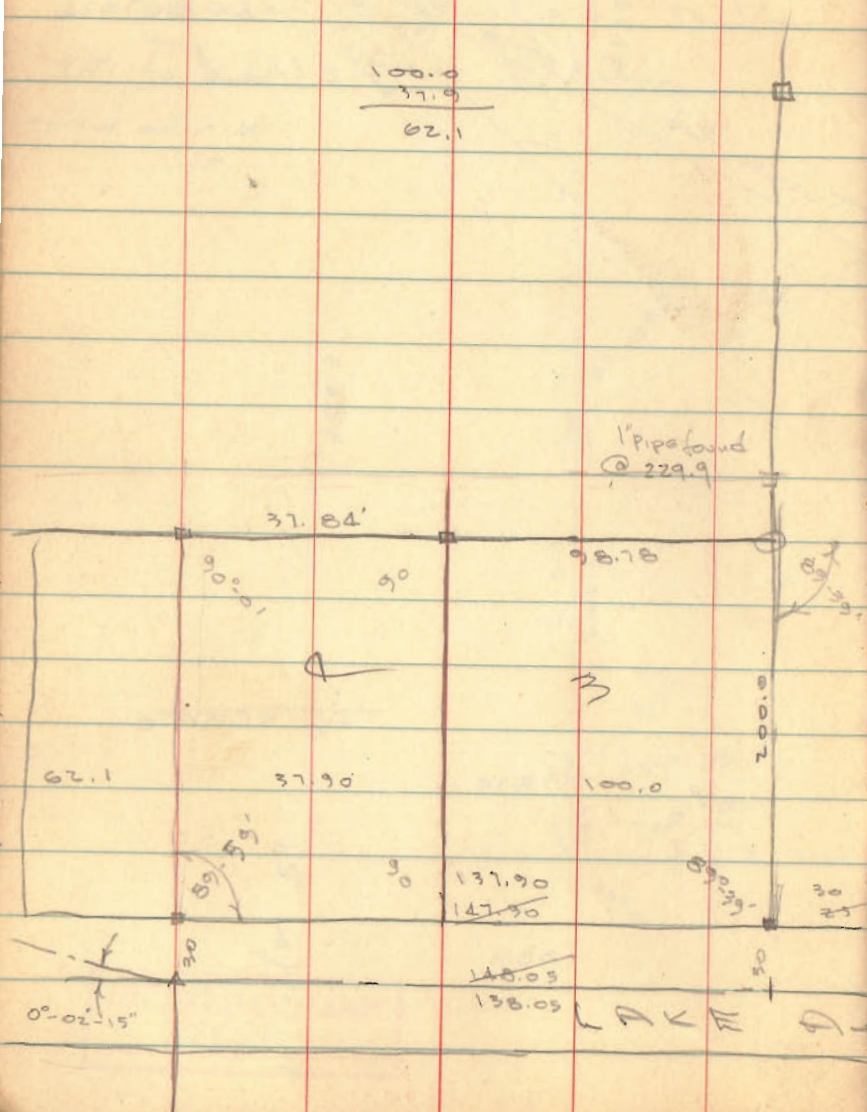 100.0
37.9
62.1
1" pipe found
@ 229.9
37.84'
98.78
90°-01'
90
4
3
200.0
62.1
37.90
100.0
89-59'
90
137.90
147.90
89°-39'
30
25
30
148.05
138.05
30
0°-02'-15"
LAKE D